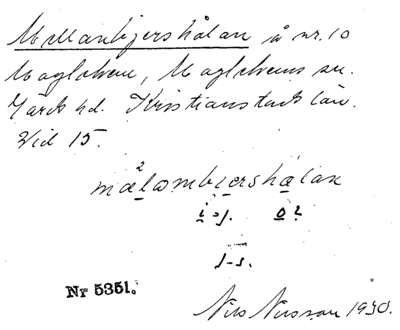 Mellanbjershålan å nr. 10
Maglehem, Maglehems sn.
Gärds hd. Kristianstads län.
Vid 15.
2
mælambiershålan
i=j. o?
j-s.
Nr 5351.
Nils Nilsson 1930.